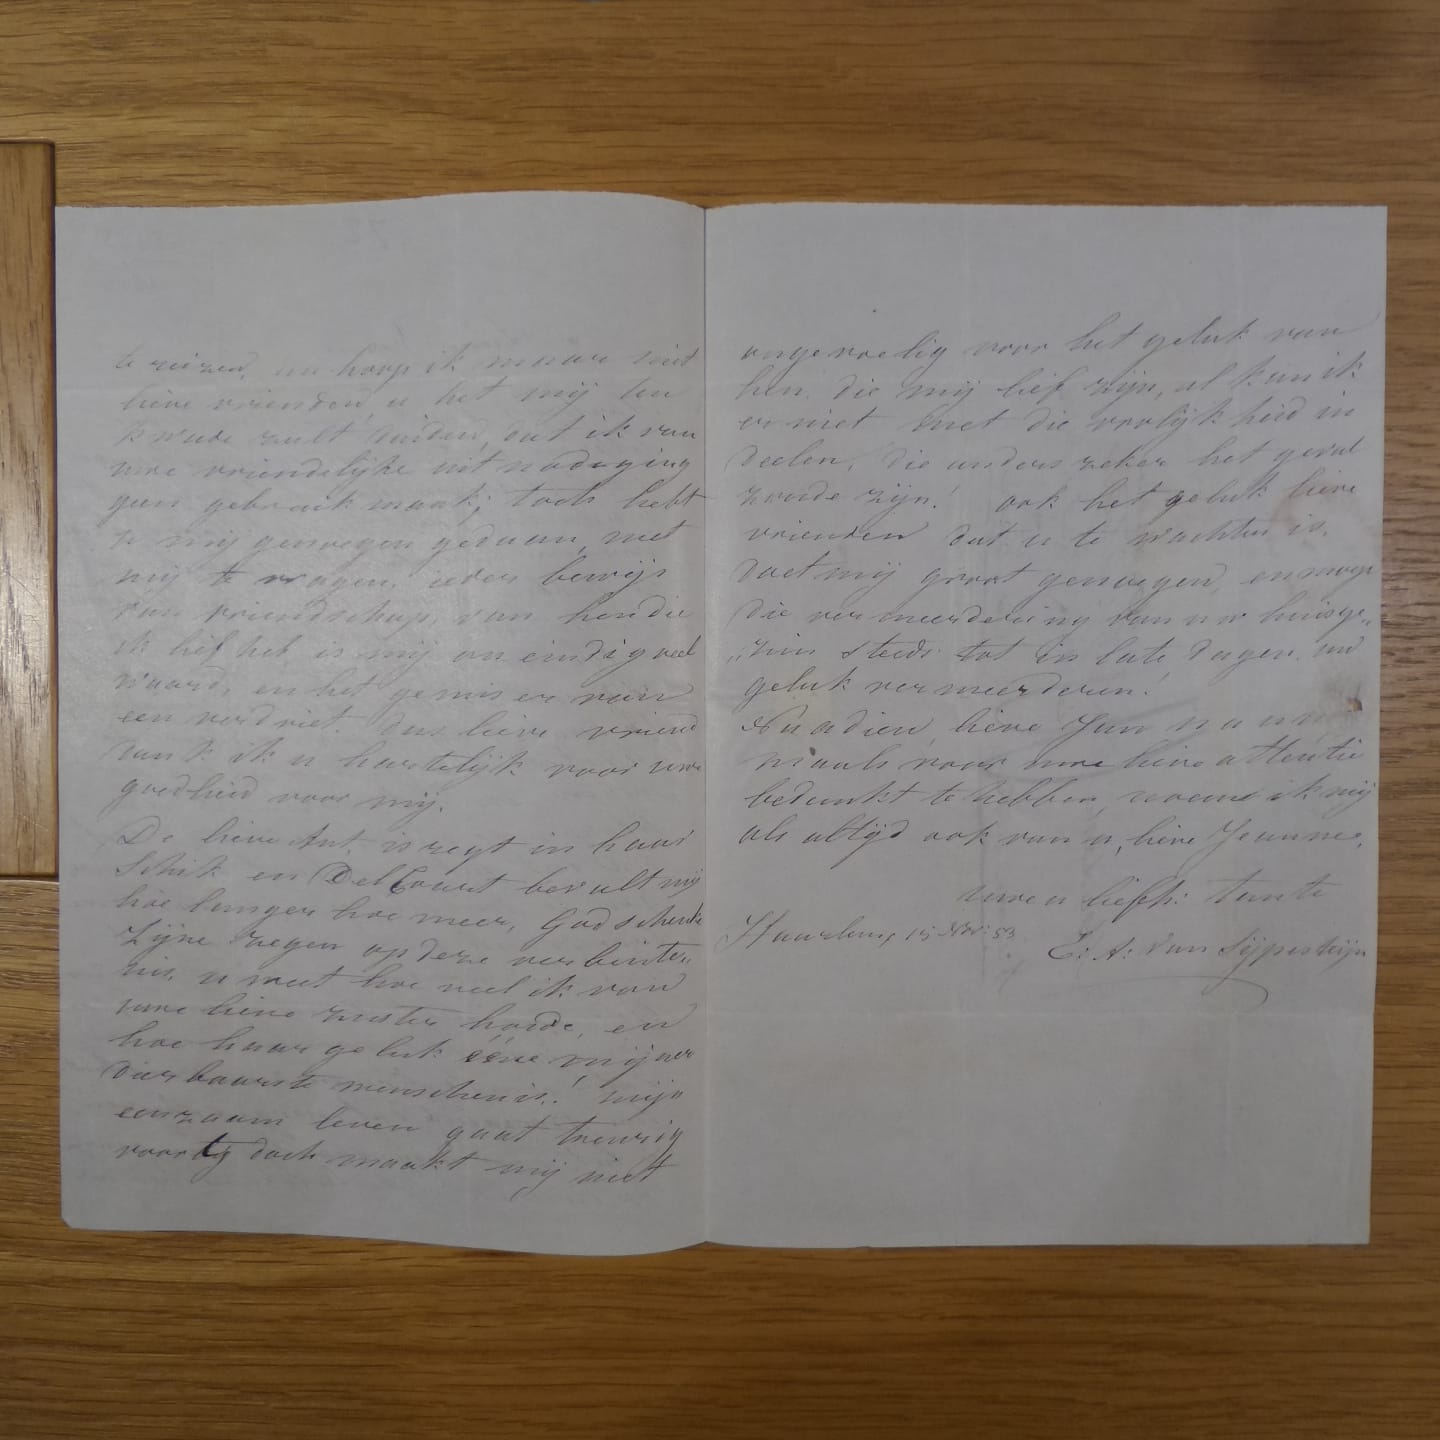 te reizen, en hoop ik maar niet
lieve vrienden, u het mij ten
kwade zult duiden, dat ik van
uwe vriendelijke uitnodiging
geen gebruik maak; toch hebt
u mij genoegen gedaan, met
mij te vragen, ieder bewijs
van vriendschap, van hen die
ik lief heb is mij oneindig veel
waard, en het gemis er van
een verdriet. Dus lieve vriend
dank ik u hartelijk voor uwe
goedheid voor mij.
De lieve Ant. is regt in haar
schik en DelCourt bevalt mij
hoe langer hoe meer, God schenke
zijne zegen op deze verbinte„
nis, u weet hoe veel ik van
uwe lieve zuster houde, en
hoe haar geluk ééne mijner
dierbaarste menschen is! mijn
eenzaam leven gaat treurig
voort, doch maakt mij niet
ongevoelig voor het geluk van
hen die mij lief zijn, al kan ik
er niet met die vrolijkheid in
deelen, die anders zeker het geval
zoude zijn! ook het geluk lieve
vrienden dat u te wachten is,
doet mij groot genoegen, en moge
die vermeerdering van uw huisge„
„zin steeds tot in late dagen uw
geluk vermeerderen!
Na dien, lieve Jan u
maals voor uwe lieve attentie
bedankt te hebben, noeme ik mij
als altijd ook van u, lieve Jeanne,
uwe u liefh: Tante
Haarlem, 15 Nov: 53
E: A: van Sijpesteijn